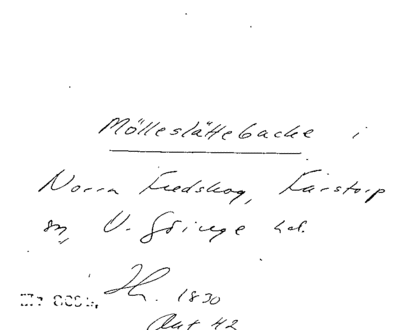 Mölleslättebacke i
Norra Fredskog, Färstorp
sn, V. Göinge hd.
1830
Akt 42